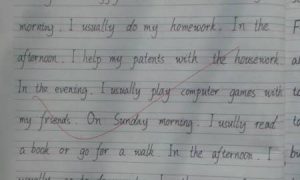 morning. I usually do my homework. In the
afternoon. I help my patents with the housework.
In the evening. I usually play computer games with
my friends. On Sunday morning. I usully read
a book or go for a walk In the afternoon. I